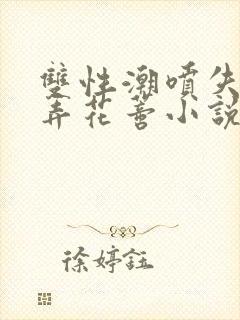 雙性潮噴失
弄花蒂小說
徐婷鈺